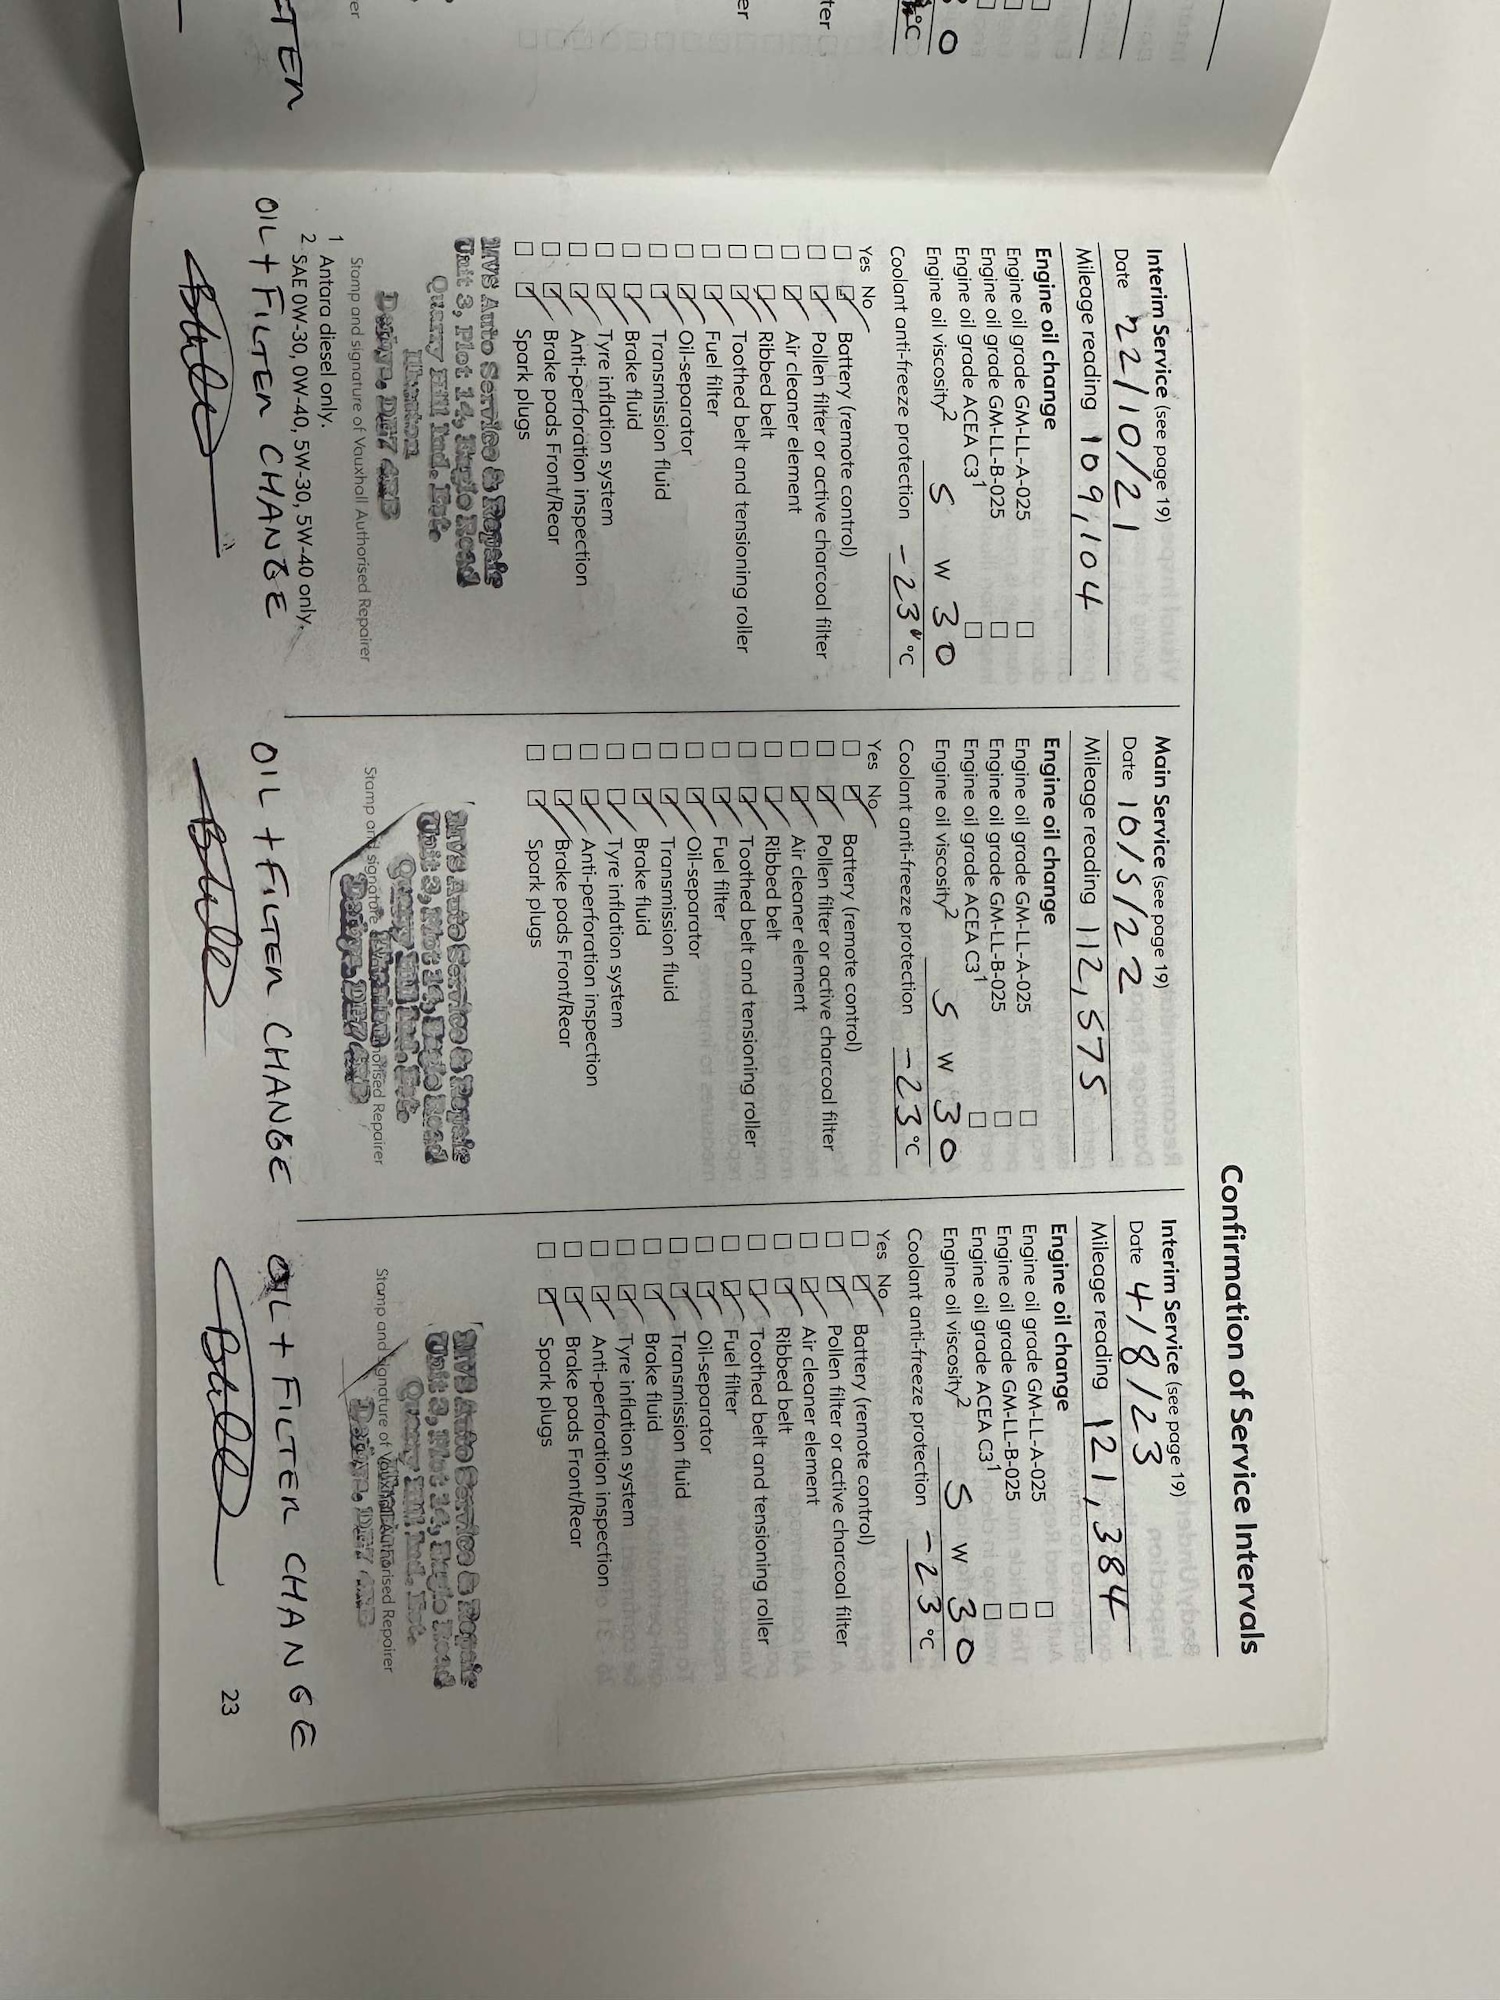 Confirmation of Service Intervals
Interim Service (see page 19)
Date 22/10/21
Mileage reading 109,104
Engine oil change
Engine oil grade GM-LL-A-025
Engine oil grade GM-LL-B-025
Engine oil grade ACEA C3¹
Engine oil viscosity² 5 W 30
Coolant anti-freeze protection -23 °C
Yes No
Battery (remote control)
Pollen filter or active charcoal filter
Air cleaner element
Ribbed belt
Toothed belt and tensioning roller
Fuel filter
Oil-separator
Transmission fluid
Brake fluid
Tyre inflation system
Anti-perforation inspection
Brake pads Front/Rear
Spark plugs
MVS Auto Service & Repair
Unit 3, Plot 14, Eagle Road
Quarry Hill Ind. Est.
Ilkeston
Derbys. DE7 4RB
Stamp and signature of Vauxhall Authorised Repairer
1 Antara diesel only.
2 SAE 0W-30, 0W-40, 5W-30, 5W-40 only.
OIL + FILTER CHANGE
Main Service (see page 19)
Date 10/5/22
Mileage reading 112,575
Engine oil change
Engine oil grade GM-LL-A-025
Engine oil grade GM-LL-B-025
Engine oil grade ACEA C3¹
Engine oil viscosity² 5 W 30
Coolant anti-freeze protection -23 °C
Yes No
Battery (remote control)
Pollen filter or active charcoal filter
Air cleaner element
Ribbed belt
Toothed belt and tensioning roller
Fuel filter
Oil-separator
Transmission fluid
Brake fluid
Tyre inflation system
Anti-perforation inspection
Brake pads Front/Rear
Spark plugs
MVS Auto Service & Repair
Unit 3, Plot 14, Eagle Road
Quarry Hill Ind. Est.
Ilkeston
Derbys. DE7 4RB
Stamp and signature Authorised Repairer
OIL + FILTER CHANGE
Interim Service (see page 19)
Date 4/8/23
Mileage reading 121,384
Engine oil change
Engine oil grade GM-LL-A-025
Engine oil grade GM-LL-B-025
Engine oil grade ACEA C3¹
Engine oil viscosity² 5 W 30
Coolant anti-freeze protection -23 °C
Yes No
Battery (remote control)
Pollen filter or active charcoal filter
Air cleaner element
Ribbed belt
Toothed belt and tensioning roller
Fuel filter
Oil-separator
Transmission fluid
Brake fluid
Tyre inflation system
Anti-perforation inspection
Brake pads Front/Rear
Spark plugs
MVS Auto Service & Repair
Unit 3, Plot 14, Eagle Road
Quarry Hill Ind. Est.
Derbys. DE7 4RB
Stamp and signature of Vauxhall Authorised Repairer
OIL + FILTER CHANGE
23